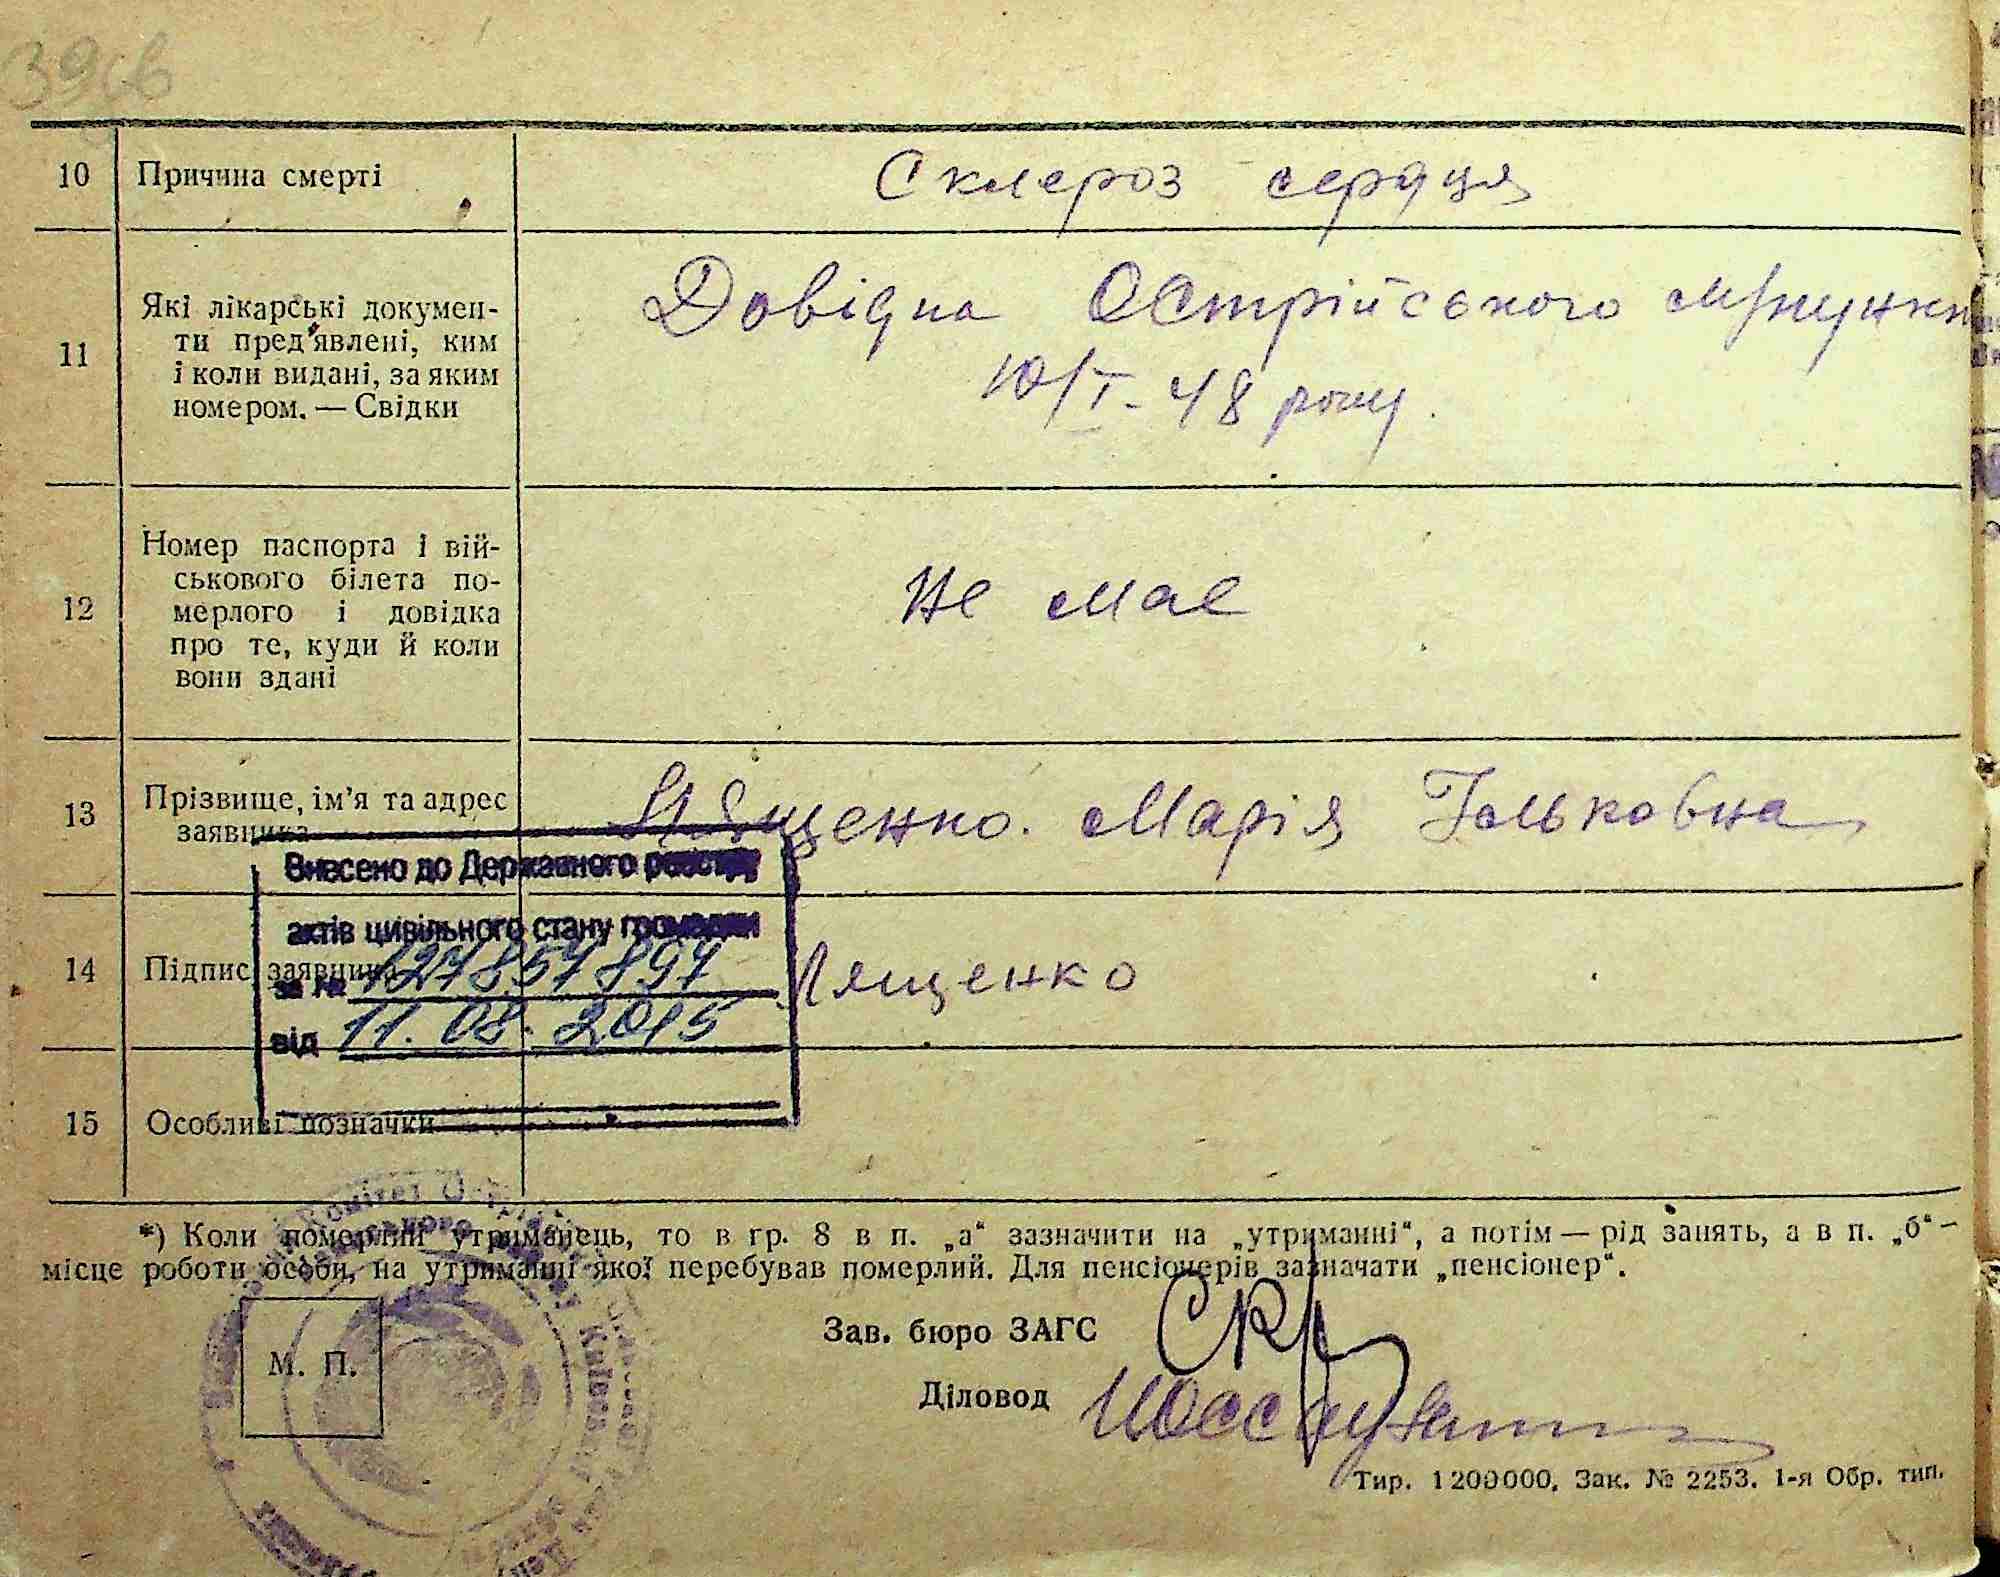 10 Причина смерті Склероз серця
11 Які лікарські докумен-
ти пред'явлені, ким
і коли видані, за яким
номером. — Свідки
Довідка Острійського
10/I - 48 року.
12 Номер паспорта і вій-
ськового білета по-
мерлого і довідка
про те, куди й коли
вони здані
Не має
13 Прізвище, ім'я та адрес
заявника
Лященко. Марія Ільковна
Внесено до Державного реєстру
актів цивільного стану громадян
за № 127857897
від 11.08.2015
14 Підпис заявника Лященко
15 Особливі позначки
*) Коли померлий утриманець, то в гр. 8 в п. „а“ зазначити на „утриманні“, а потім — рід занять, а в п. „б“ —
місце роботи особи, на утриманні якої перебував померлий. Для пенсіонерів зазначати „пенсіонер“.
М. П.
Зав. бюро ЗАГС
Діловод
Тир. 1200000. Зак. № 2253. 1-я Обр. тип.